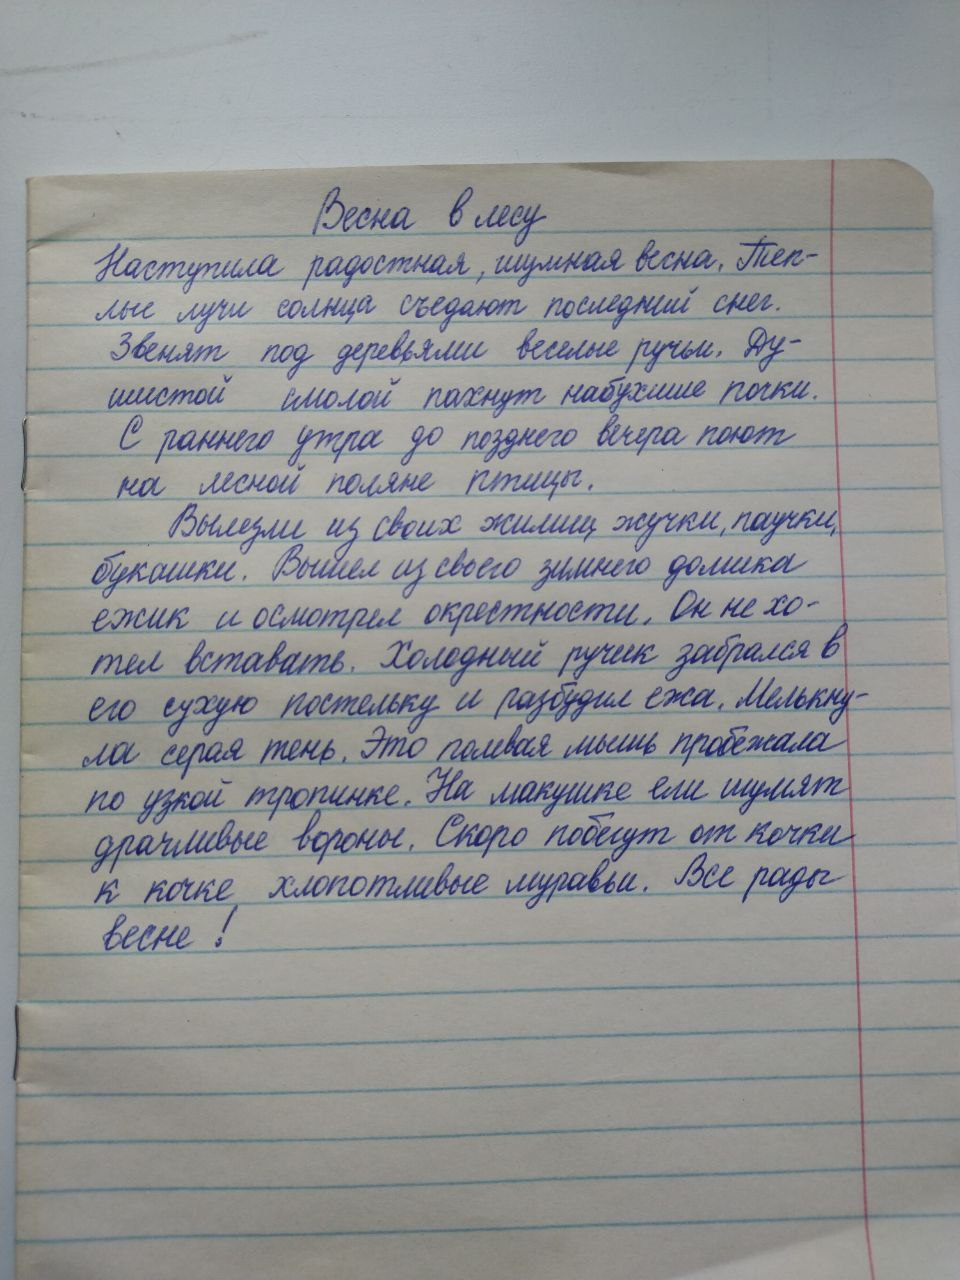 Весна в лесу
Наступила радостная, шумная весна. Теп-
лые лучи солнца съедают последний снег.
Звенят под деревьями веселые ручьи. Ду-
шистой смолой пахнут набухшие почки.
С раннего утра до позднего вечера поют
на лесной поляне птицы.
Вылезли из своих жилищ жучки, паучки,
букашки. Вышел из своего зимнего домика
ежик и осмотрел окрестности. Он не хо-
тел вставать. Холодный ручик забрался в
его сухую постельку и разбудил ежа. Мелькну-
ла серая тень. Это полевая мышь пробежала
по узкой тропинке. На макушке ели шумят
драчливые вороны. Скоро побегут от кочки
к кочке хлопотливые муравьи. Все рады
весне!